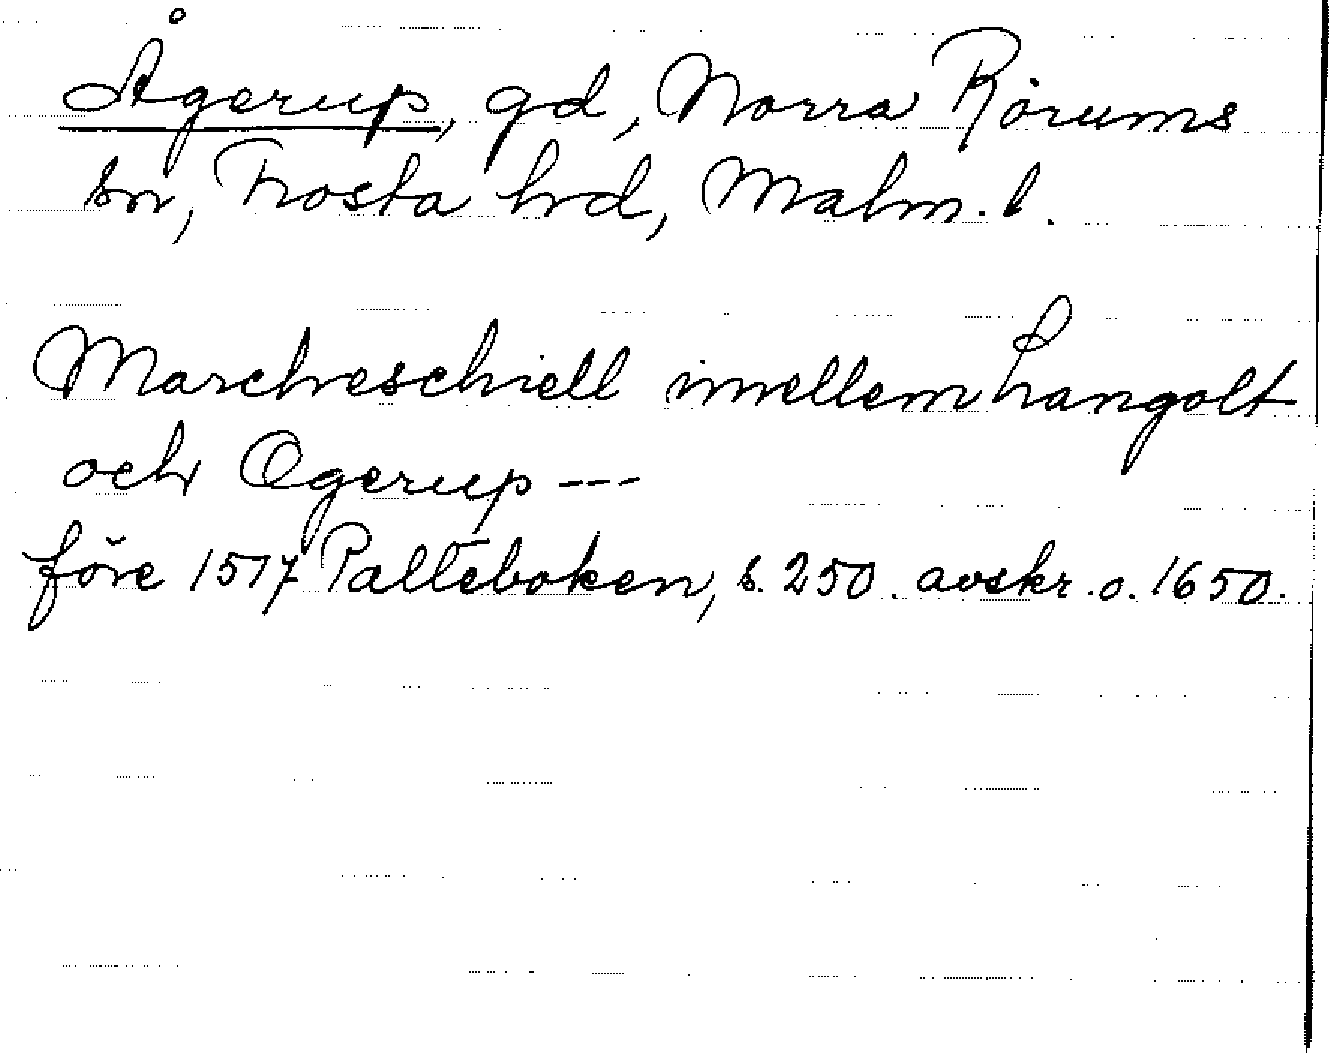 Ågerup, gd, Norra Rörums
sn, Frosta hd, Malm. l.
Marcheschiell imellem Langolt
och Ogerup ---
före 1517 Palteboken, s. 250. avskr. o. 1650.